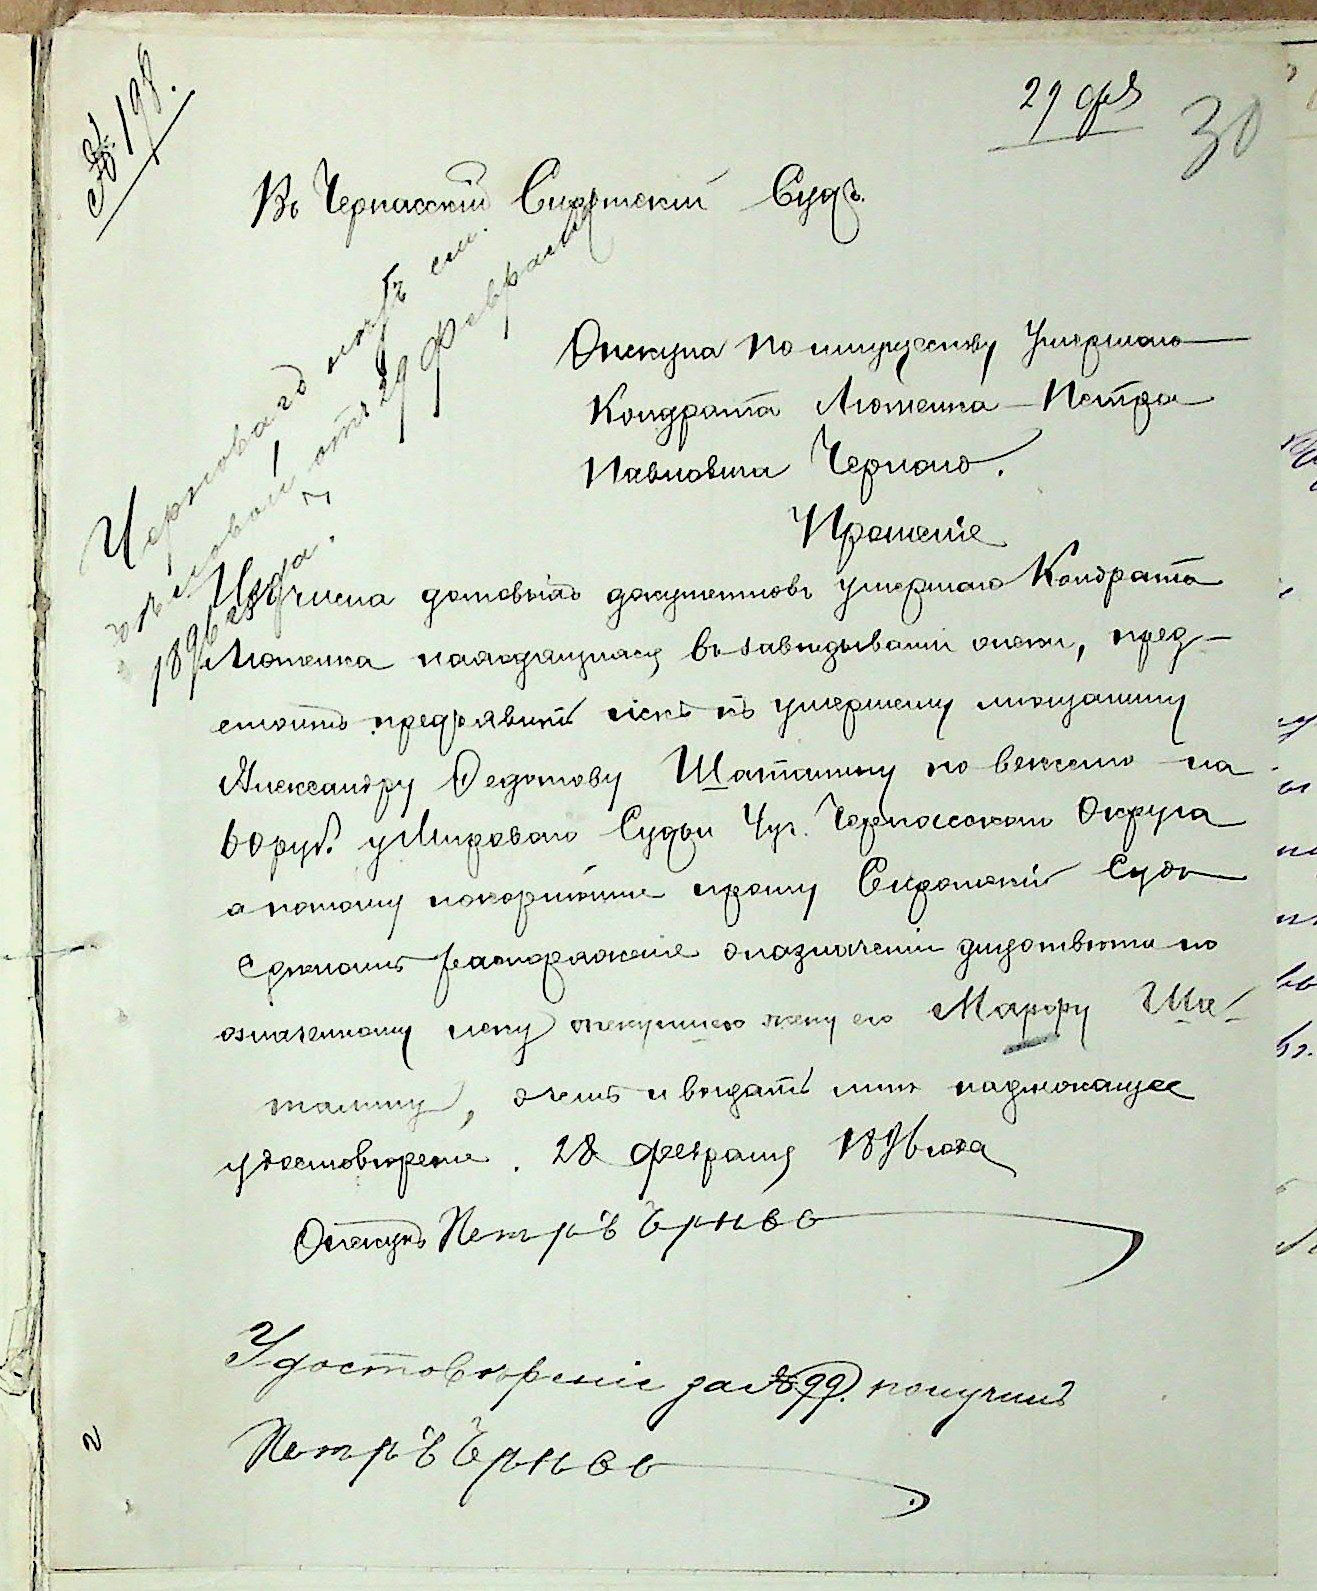 № 198.
29 фев
30
Въ Черкасскій Сиротскій Судъ.
Опекуна по имуществу Умершаго
Кондрата Лютенка – Петра
Павловича Чернаго.
Прошеніе
Изъ числа долговыхъ документовъ умершаго Кондрата
Лютенка находящихся въ завѣдываніи опеки, пред-
стоитъ предъявить искъ къ умершему мѣщанину
Александру Федотову Шаталину по векселю на
60 руб. у Мироваго Судьи Уч. Черкасскаго Округа
а потому покорнѣйше прошу Сиротскій Судъ
сдѣлать распоряженіе о назначеніи для отвѣта по
означенному иску опекуншею жену его Марфу Ша-
талину, о чемъ и выдать мнѣ надлежащее
удостовѣреніе. 28 февраля 1896 года
Опекунъ Петръ Чрнвв
Черноваго
журъ см.
отъ 29 февраля
1896 года.
Удостовѣреніе за № 99. получилъ
Петръ Чрнвв